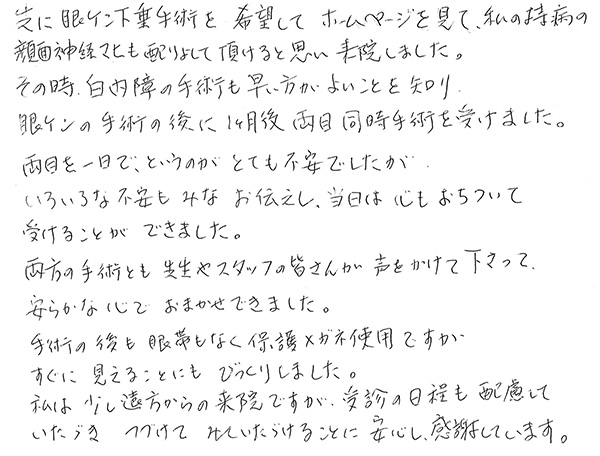 先に眼ケン下垂手術を 希望して ホームページを見て、私の持病の
顔面神経マヒも配りょして頂けると思い 来院しました。
その時、白内障の手術も早い方がよいことを知り
眼ケンの手術の後に 1ヶ月後 両目同時手術を受けました。
両目を一日で、というのが とても不安でしたが
いろいろな不安も みな お伝えし、当日は 心もおちついて
受けることが できました。
両方の手術とも 先生やスタッフの皆さんが 声をかけて下さって、
安らかな心で おまかせできました。
手術の後も 眼帯もなく 保護メガネ使用ですが
すぐに 見えることにも びっくりしました。
私は 少し遠方からの来院ですが、受診の日程も 配慮して
いただき つづけて みていただけることに 安心し、感謝しています。